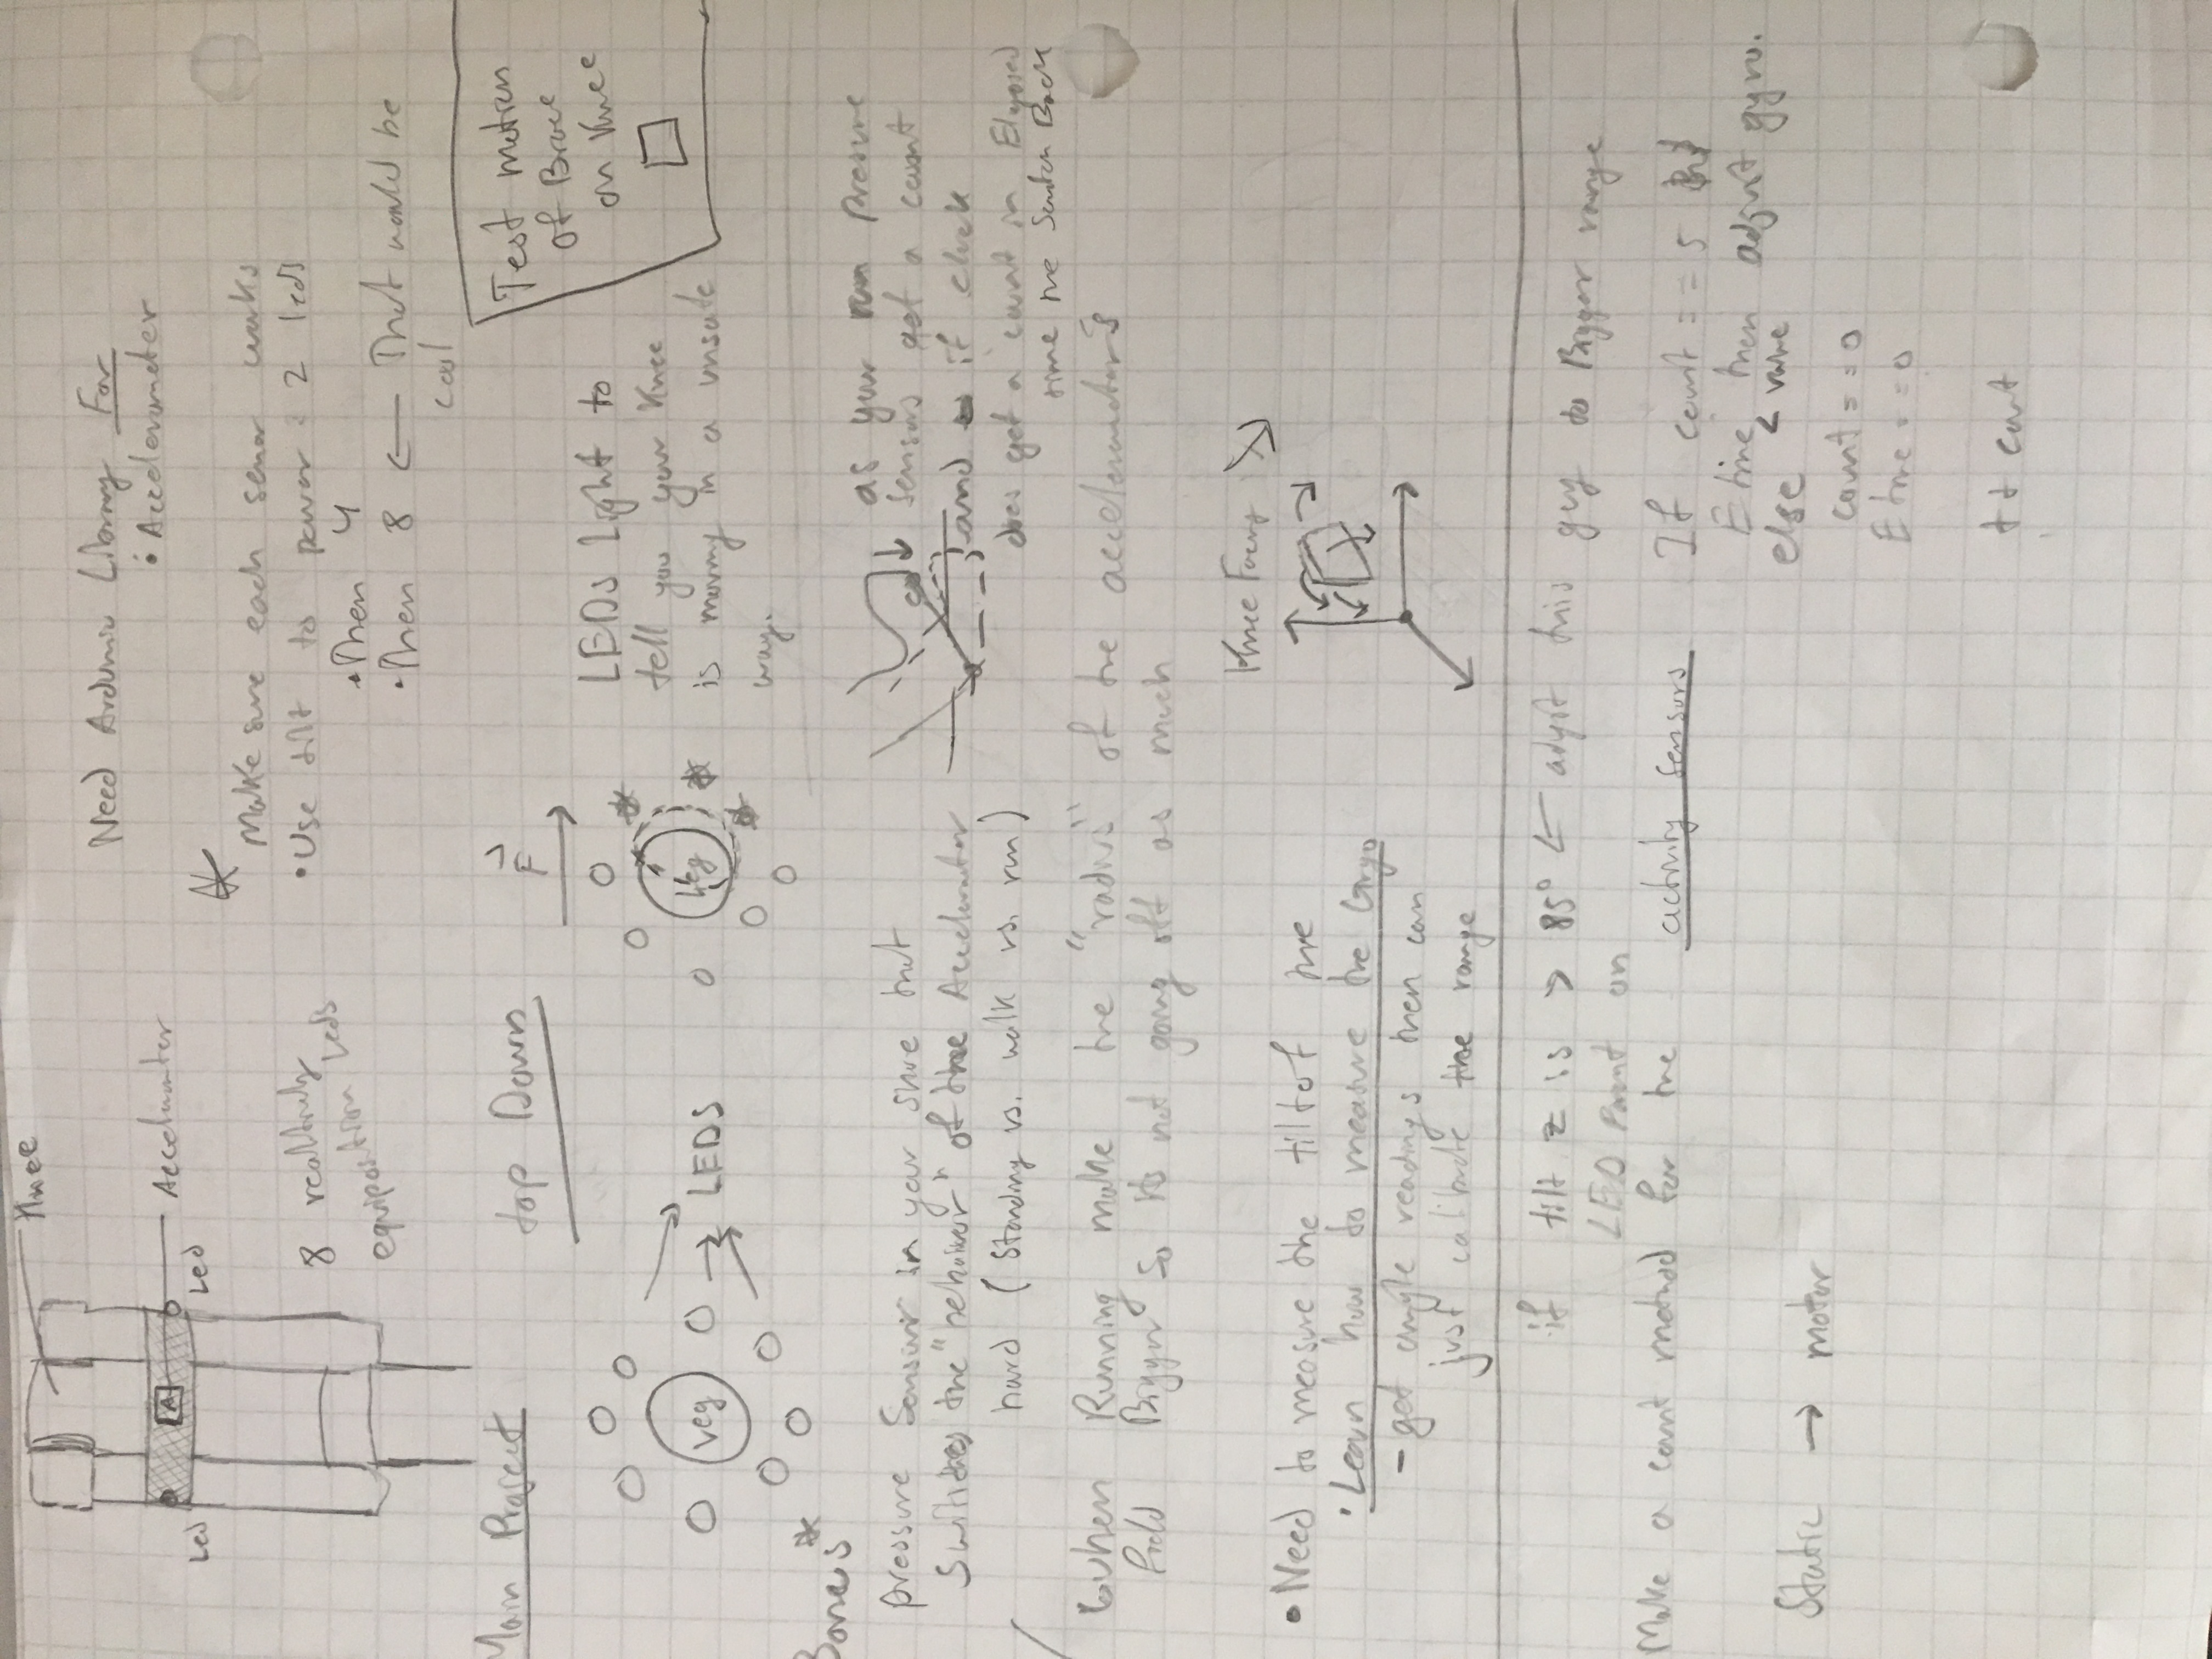 Knee
Accelumter
Led
Led
8 realtivly
equiposition Leds
Need Arduino Library For
• Accelerometer
Make sure each senor works
• Use tilt to power : 2 leds
• Then 4
• Then 8 ← That would be
cool
Main Project
top Down
F
Test motion
of Brace
on Knee
Leg
→ LEDS
Leg
LEDs Light to
tell you your Knee
is moving in a unsafe
way.
Bones*
pressure Sensors in your shoe that
Switches the "behaiver" of the Accelumter
hard (Standing vs. walk vs. run)
as your run presure
sensors get a count
and if clock
does get a count in Elapsed
time the Switch Back
When Running make the "radius" of the accelerometer's
field Bigger so its not going off as much
Knee Facing
• Need to measure the tilt of the
• Learn how to measure the Gryo
- get angle readings then can
just calibrate the range
if tilt z is > 85° ← adjust this guy to Bigger range
LED on
Make a count method for the activity sensors
If count == 5
Etime then adjust gyro.
< value
else
count == 0
Etime == 0
++ count
Static → motor